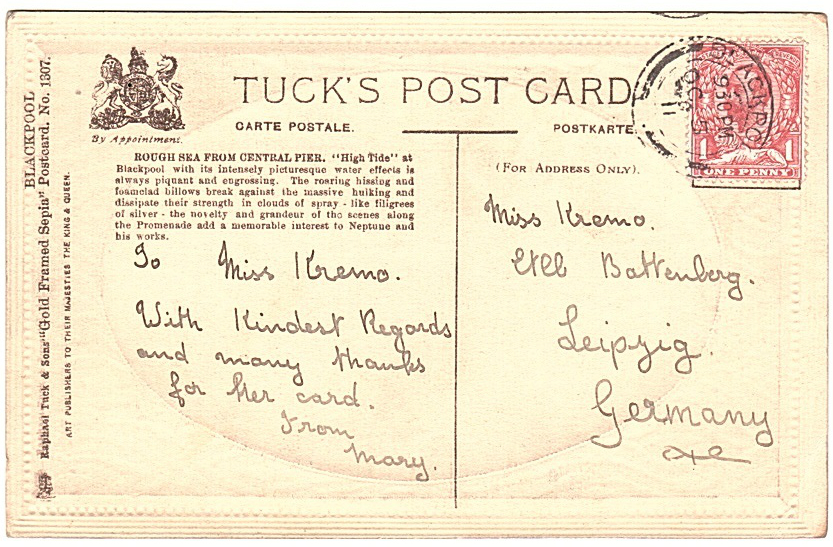 BLACKPOOL
Raphael Tuck & Sons' "Gold Framed Sepia" Postcard. No. 1307.
ART PUBLISHERS TO THEIR MAJESTIES THE KING & QUEEN.
By Appointment.
TUCK'S POST CARD
CARTE POSTALE.
POSTKARTE
ROUGH SEA FROM CENTRAL PIER. "High Tide" at
Blackpool with its intensely picturesque water effects is
always piquant and engrossing. The roaring hissing and
foamclad billows break against the massive bulking and
dissipate their strength in clouds of spray - like filigrees
of silver - the novelty and grandeur of the scenes along
the Promenade add a memorable interest to Neptune and
his works.
To Miss Kremo.
With Kindest Regards
and many thanks
for her card.
From
Mary.
(FOR ADDRESS ONLY).
Miss Kremo.
Etbb Battenberg.
Leipzig.
Germany
BLACKPO
9.30 PM
OC 5
11
1 1
ONE PENNY